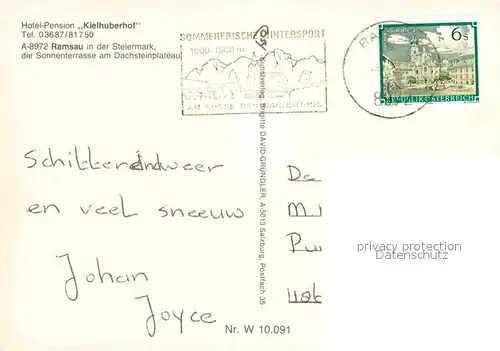 Hotel-Pension „Kielhuberhof"
Tel. 03687/81750
A-8972 Ramsau in der Steiermark,
die Sonnenterrasse am Dachsteinplateau
SOMMERFRISCHE WINTERSPORT
AM FUSSE DES DACHSTEINS
RA
6s
REPUBLIK ÖSTERREICH
Kunstverlag Brigitte DAVID-GRÜNDLER, A-5013 Salzburg, Postfach 35
Schitterend weer
en veel sneeuw
Johan
Joyce
De
M
privacy protection
Datenschutz
Nr. W 10.091